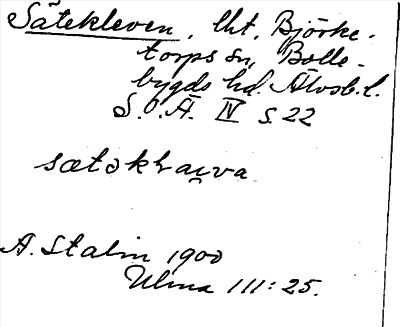 Sätekleven, lht, Björke-
torps sn, Bolle-
bygds hd. Älvsb. l.
S.O.Ä. IV s. 22
sætəkla
A. Stalin 1900
Ulma 111:25.